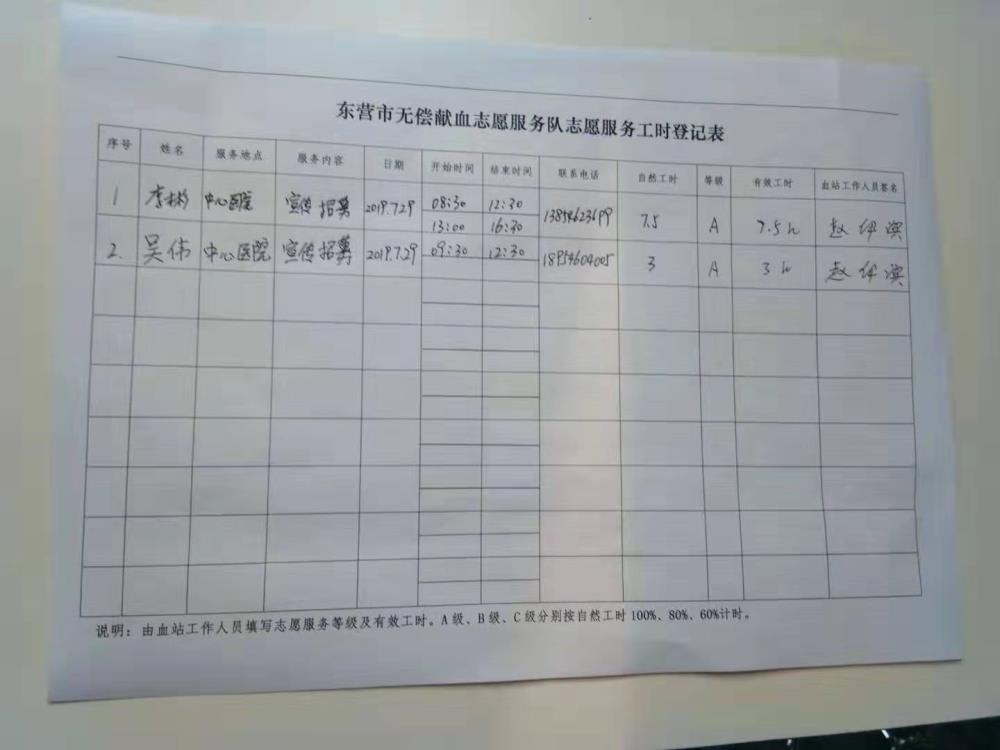 东营市无偿献血志愿服务队志愿服务工时登记表
序号 姓名 服务地点 服务内容 日期 开始时间 结束时间 联系电话 自然工时 等级 有效工时 血站工作人员签名
1 李彬 中心医院 宣传招募 2019.7.29 08:30 12:30 7.5 A 7.5h
13:00 16:30
2. 吴伟 中心医院 宣传招募 2019.7.29 09:30 12:30 18954604005 3 A 3h
说明：由血站工作人员填写志愿服务等级及有效工时。A级、B级、C级分别按自然工时100%、80%、60%计时。